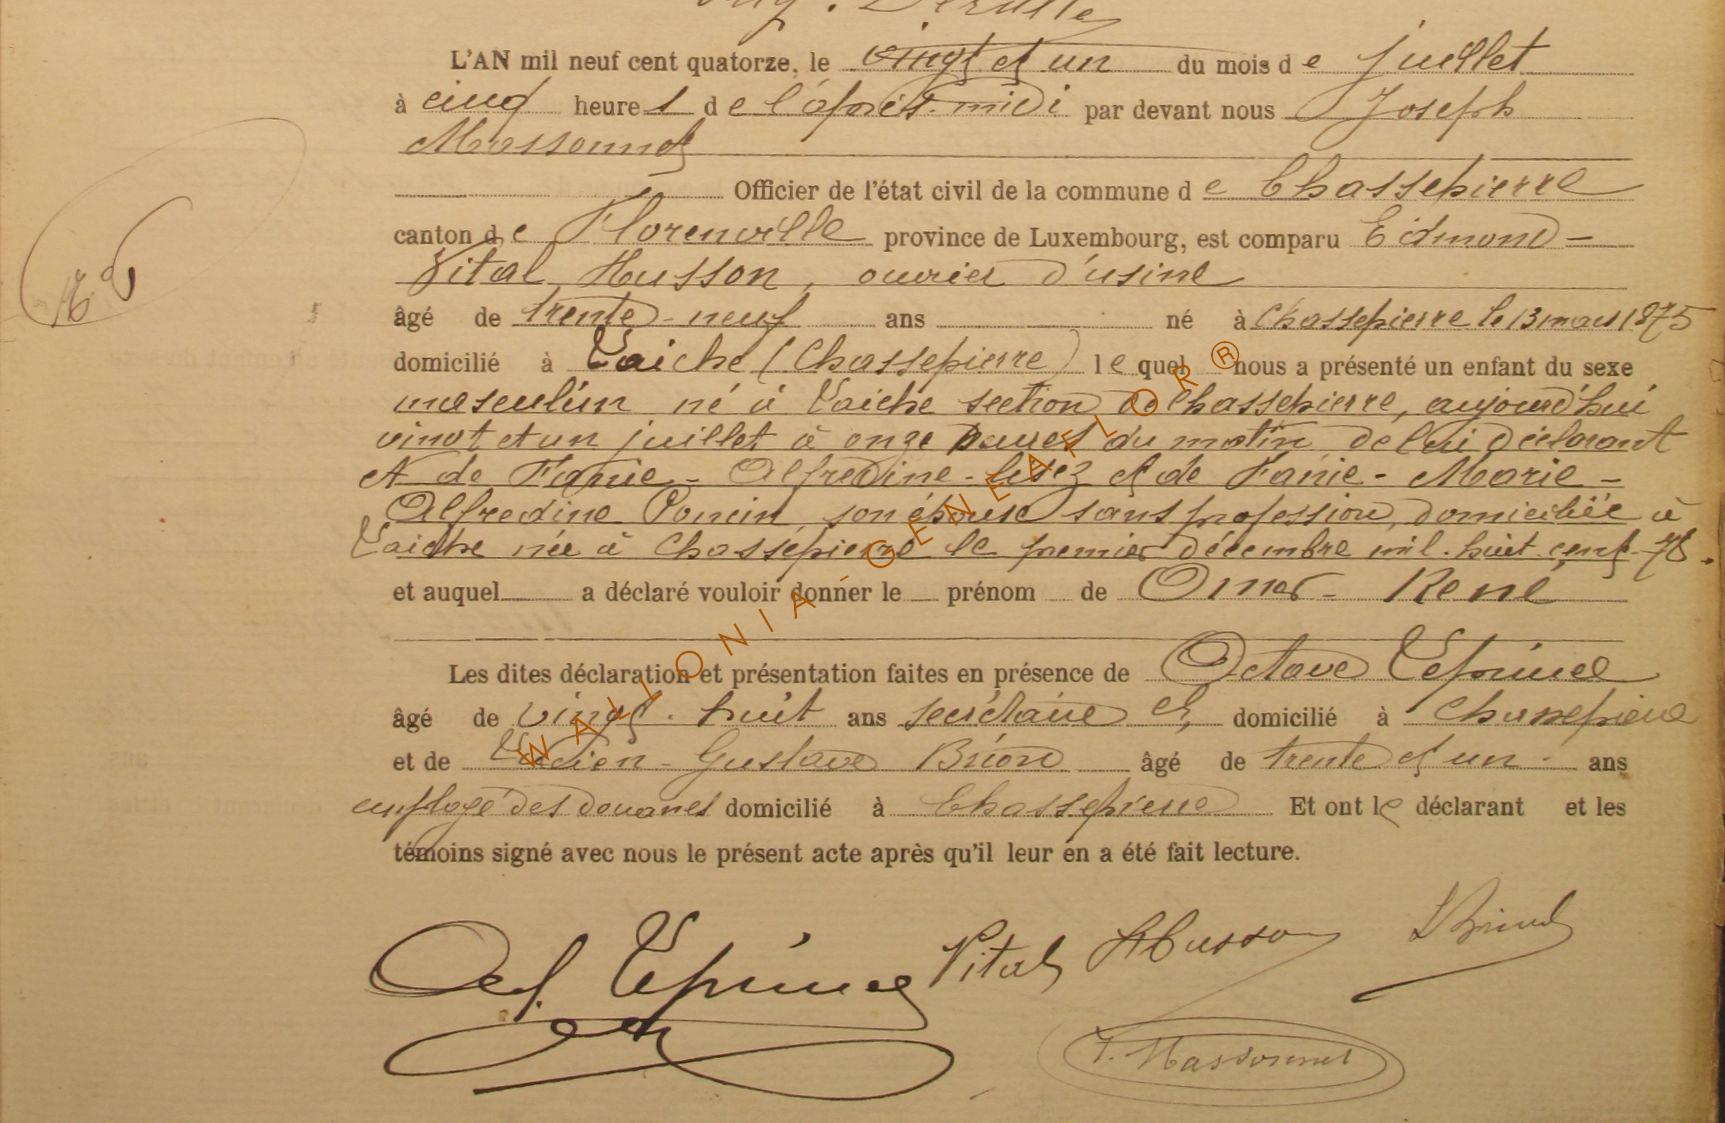 L'AN mil neuf cent quatorze, le vingt et un du mois de juillet
à cinq heures de l'après-midi par devant nous Joseph
Massonnet
Officier de l'état civil de la commune de Chassepierre
canton de Florenville province de Luxembourg, est comparu Edmond -
Vital Husson, ouvrier d'usine
âgé de trente-neuf ans né à Chassepierre le 13 mars 1875
domicilié à Laiche (Chassepierre) lequel nous a présenté un enfant du sexe
masculin né à Laiche section de Chassepierre, aujourd'hui
vingt et un juillet à onze heures du matin de lui déclarant
et de Fanie - Alfredine - et de Fanie - Marie -
Alfredine Poncin, son épouse sans profession, domiciliée à
Laiche née à Chassepierre le premier décembre mil-huit-cent-78.
et auquel a déclaré vouloir donner le prénom de Omer - René
Les dites déclaration et présentation faites en présence de Octave Lépine
âgé de vingt-huit ans secrétaire Cl, domicilié à Chassepierre
et de Lucien - Gustave Brion âgé de trente et un ans
employé des douanes domicilié à Chassepierre Et ont le déclarant et les
témoins signé avec nous le présent acte après qu'il leur en a été fait lecture.
Vital Husson
J. Massonnet
WALLONIA - GENEAFLOR ®